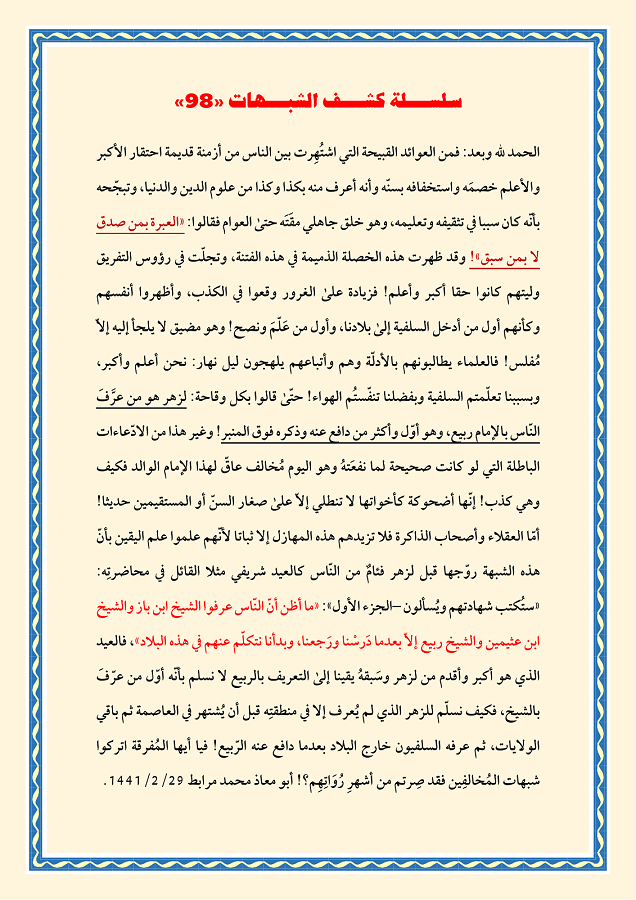 سلسلة كشف الشبهات «98»
الحمد لله وبعد: فمن العوائد القبيحة التي اشتُهِرت بين الناس من أزمنة قديمة احتقار الأكبر
والأعلم خصمَه واستخفافه بسنّه وأنه أعرف منه بكذا وكذا من علوم الدين والدنيا، وتبجّحه
بأنّه كان سببا في تثقيفه وتعليمه، وهو خلق جاهلي مقَتَه حتىٰ العوام فقالوا: «العبرة بمن صدق
لا بمن سبق»! وقد ظهرت هذه الخصلة الذميمة في هذه الفتنة، وتجلّت في رؤوس التفريق
وليتهم كانوا حقا أكبر وأعلم! فزيادة علىٰ الغرور وقعوا في الكذب، وأظهروا أنفسهم
وكأنهم أول من أدخل السلفية إلىٰ بلادنا، وأول من عَلّمَ ونصح! وهو مضيق لا يلجأ إليه إلاّ
مُفلس! فالعلماء يطالبونهم بالأدلّة وهم وأتباعهم يلهجون ليل نهار: نحن أعلم وأكبر،
وبسببنا تعلّمتم السلفية وبفضلنا تنفّستُم الهواء! حتّىٰ قالوا بكل وقاحة: لزهر هو من عرَّفَ
النّاس بالإمام ربيع، وهو أوّل وأكثر من دافع عنه وذكره فوق المنبر! وغير هذا من الادّعاءات
الباطلة التي لو كانت صحيحة لما نفعَتهُ وهو اليوم مُخالف عاقّ لهذا الإمام الوالد فكيف
وهي كذب! إنّها أضحوكة كأخواتها لا تنطلي إلاّ علىٰ صغار السنّ أو المستقيمين حديثا!
أمّا العقلاء وأصحاب الذاكرة فلا تزيدهم هذه المهازل إلا ثباتا لأنّهم علموا علم اليقين بأنّ
هذه الشبهة روّجها قبل لزهر فئامٌ من النّاس كالعيد شريفي مثلا القائل في محاضرتِه:
«ستُكتب شهادتهم ويُسألون –الجزء الأول»: «ما أظن أنّ النّاس عرفوا الشيخ ابن باز والشيخ
ابن عثيمين والشيخ ربيع إلاّ بعدما دَرسْنا ورَجعنا، وبدأنا نتكلّم عنهم في هذه البلاد»، فالعيد
الذي هو أكبر وأقدم من لزهر وسَبقهُ يقينا إلىٰ التعريف بالربيع لا نسلم بأنّه أوّل من عرّفَ
بالشيخ، فكيف نسلّم للزهر الذي لم يُعرف إلا في منطقتِه قبل أن يُشتهر في العاصمة ثم باقي
الولايات، ثم عرفه السلفيون خارج البلاد بعدما دافع عنه الرّبيع! فيا أيها المُفرقة اتركوا
شبهات المُخالفِين فقد صِرتم من أشهرِ رُوَاتِهِم؟! أبو معاذ محمد مرابط 29/ 2/ 1441.